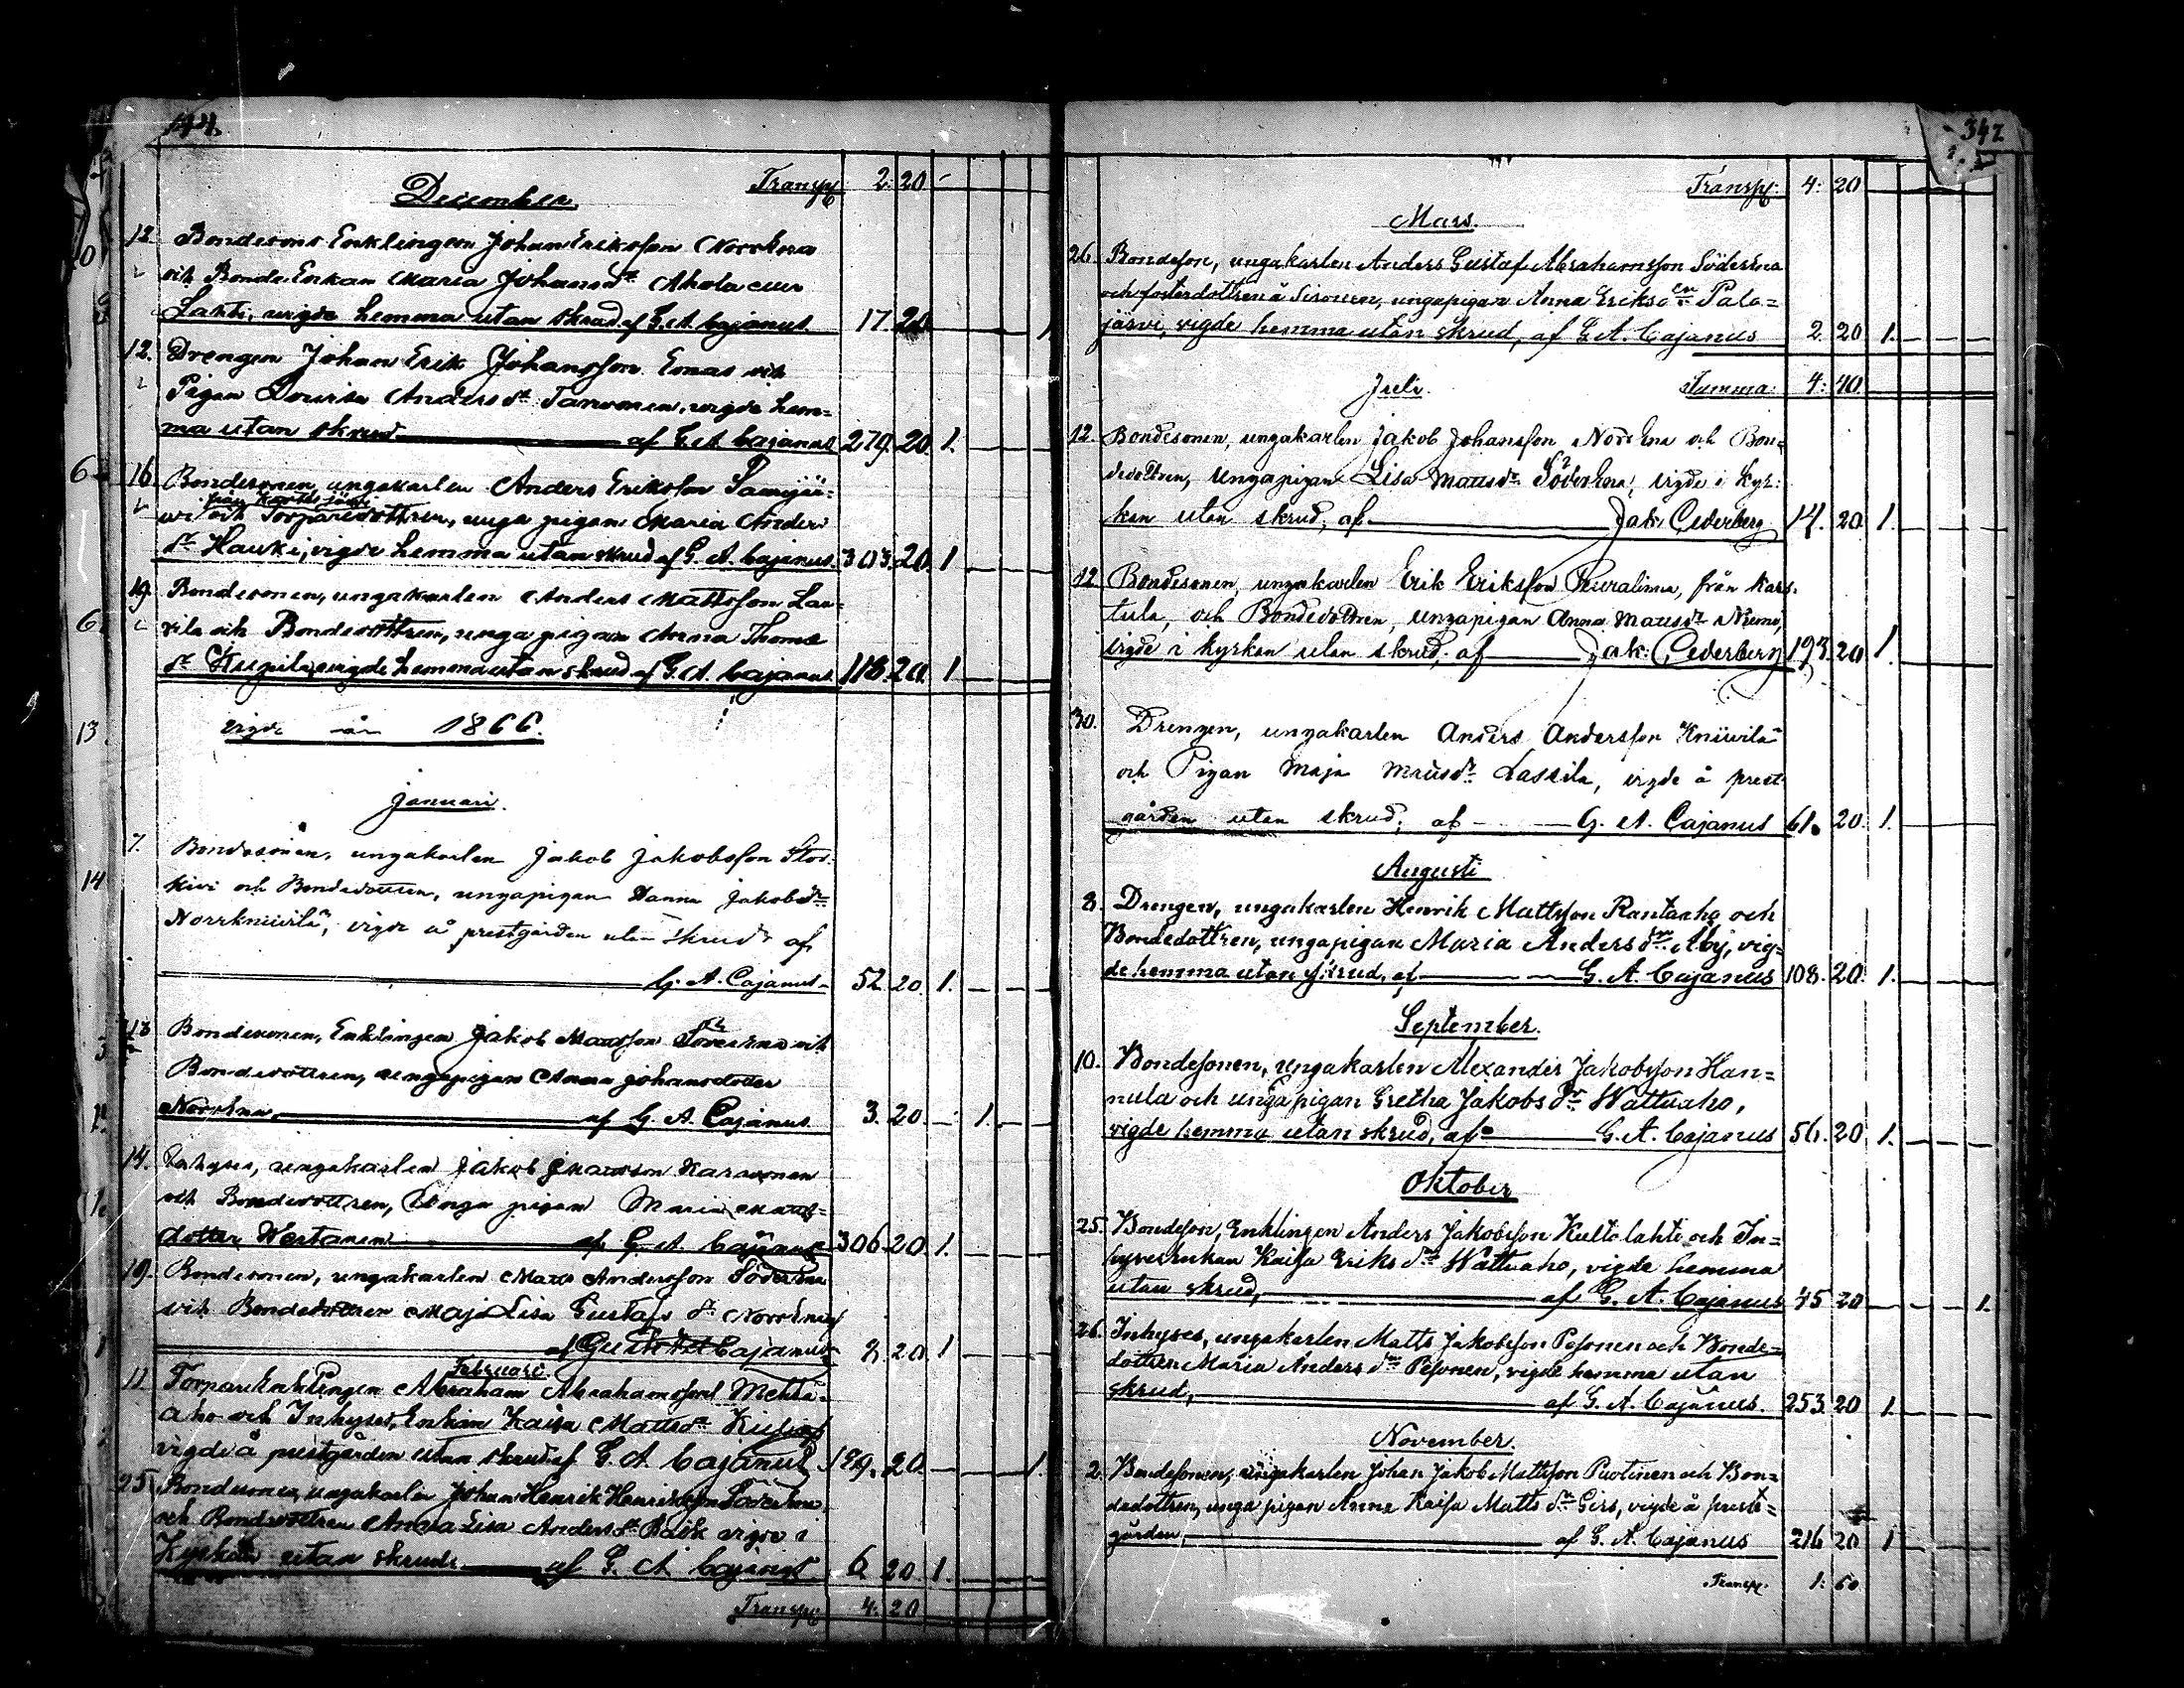 144.
December. Transp. 2. 20
12 Bondesons Enklingen Johan Eriksson Norrkna
och Bonde Enkan Maria Johansdr Ahola
Lahti, vigde hemma utan skrud af G. A. Cajanus 17. 20 1
12. Drengen Johan Erik Johansson Enas och
Pigan Lovisa Andersdr Tarvonen, vigde hem=
ma utan skrud af G. A. Cajanus 279. 20. 1.
16. Bondesonen, ungakarlen Anders Eriksson
och Torparedottren, unga pigan Maria Anders
dr Hauki, vigde hemma utan skrud af G. A. Cajanus. 303. 20. 1
19. Bondesonen, ungakarlen Anders Mattsson Lau=
rila och Bondedottren, unga pigan Anna Thoms
dr Kupila, vigde hemma utan skrud af G. A. Cajanus 118. 20. 1
vigde år 1866.
Januari.
7. Bondesonen, ungakarlen Jakob Jakobsson Stor=
kivi och Bondedottren, ungapigan Sanna Jakobsdr
Norrkniivilä, vigde å prestgården utan skrud af
G. A. Cajanus 52. 20. 1.
13 Bondesonen, Enklingen Jakob Mattsson Söderkna och
Bondedottren, ungapigan Anna Johansdotter
Norrkna, af G. A. Cajanus. 3. 20. 1.
14. Inhyses, ungakarlen Jakob Mattsson Karvonen
och Bondedottren, Unga pigan Maria Matts=
dotter Wertanen af G. A. Cajanus 306. 20. 1.
19. Bondesonen, ungakarlen Matts Andersson Söderkna
och Bondedottren Maja Lisa Gustafsdr Norrkna
af Cajanus 8. 20. 1
Februari
11. Torpare Enklingen Abraham Abrahamsson Mehtä=
aho och Inhyses Enkan Kaisa Mattsdr
vigde å prestgården utan skrud af G. A. Cajanus 20. 1.
25 Bondesonen, ungakarlen Johan Henrik Henriksson Söderkna
och Bondedottren Anna Lisa Andersdr Bäck vigde i
Kyrkan utan skrud af G. A. Cajanus 6 20. 1.
Transp. 4. 20
342
Transp. 4: 20
Mars.
26. Bondeson, ungakarlen Anders Gustaf Abrahamsson Söderkna
och fosterdottren å Sironen, ungapigan Anna Eriksdr Palo=
järvi, vigde hemma utan skrud, af G. A. Cajanus 2. 20 1.
Juli. Summa: 4: 40.
12. Bondesonen, ungakarlen Jakob Johansson Norrkna och Bon=
dedottren, Ungapigan Lisa Mattsdr Söderkna, vigde i Kyr=
kan utan skrud, af Jak. Cederberg 14. 20 1.
12. Bondesonen, ungakarlen Erik Eriksson Puralinna, från Kars=
tula, och Bondedottren, ungapigan Anna Mattsdr Niemi,
vigde i kyrkan utan skrud, af Jak: Cederberg 193. 20 1.
30. Drengen, ungakarlen Anders Andersson Kniivilä
och Pigan Maja Mattsdr Lassila, vigde å prest
gården utan skrud, af G. A. Cajanus 61. 20. 1.
Augusti
8. Drengen, ungakarlen Henrik Mattsson Rantaaho och
Bondedottren, ungapigan Maria Andersdr Åbý, vig=
de hemma utan skrud, af G. A. Cajanus 108. 20. 1.
September.
10. Bondesonen, ungakarlen Alexander Jakobsson Han=
nula och ungapigan Gretha Jakobsdr Wattuaho,
vigde hemma utan skrud, af G. A. Cajanus 56. 20. 1.
Oktober
25. Bondeson, Enklingen Anders Jakobsson Kultalahti och In=
hysesenkan Kaisa Eriksdr Wattuaho, vigde hemma
utan skrud, af G. A. Cajanus 45 20 1.
26. Inhyses, ungakarlen Matts Jakobsson Pesonen och Bonde=
dottren Maria Andersdr Pesonen, vigde hemma utan
skrud, af G. A. Cajanus. 253 20 1.
November.
2. Bondesonen, ungakarlen Johan Jakob Mattsson Puotinen och Bon=
dedottren, unga pigan Anna Kaisa Mattsdr Girs, vigde å prest=
gården, af G. A. Cajanus 216 20 1
Transp. 1: 60